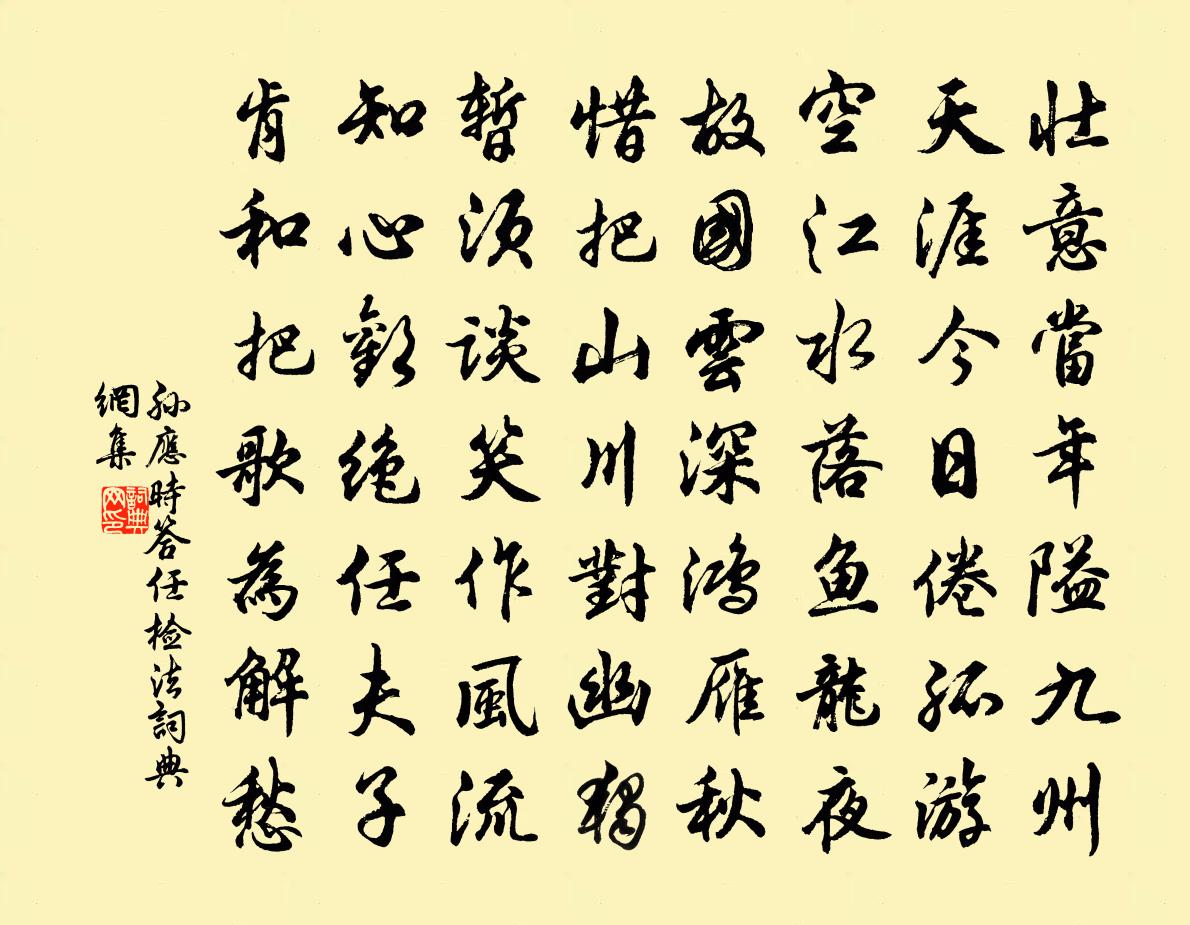 壮意當年隘九州
天涯今日倦孤游
空江水落鱼龍夜
故國雲深鴻雁秋
惜把山川對幽獨
暫須談笑作風流
知心歎絶任夫子
肯和把歌為解愁
孙應時答任檢法詞典
網集
詞典
网印